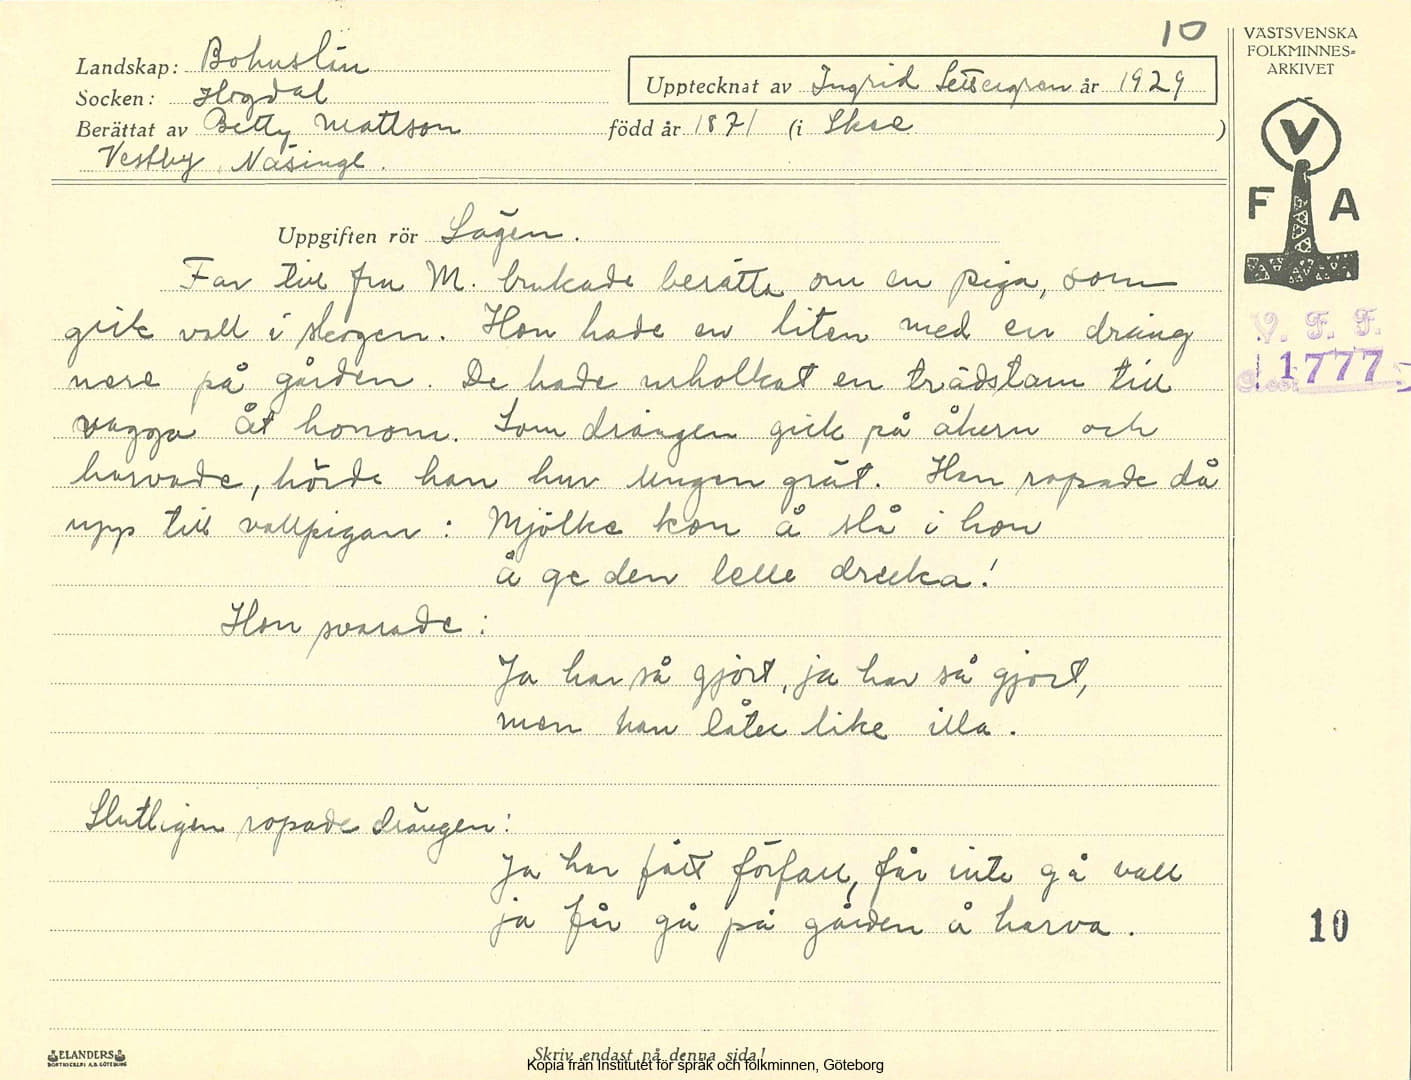 10
Landskap: Bohuslän
Socken: Hogdal
Upptecknat av Ingrid Settergren år 1929
Berättat av Betty Mattson född år 1871 (i Skee )
Vestby, Näsinge.
Uppgiften rör Sägen.
Far till fru M. brukade berätta om en piga, som
gick vall i skogen. Hon hade en liten med en dräng
nere på gården. De hade urholkat en trädstam till
vagga åt honom. Som drängen gick på åkern och
harvade, hörde han hur ungen grät. Han ropade då
upp till vallpigan: Mjölke kon å slå i hon
å ge den lelle drecka!
Hon svarade:
Ja har så gjort, ja har så gjort,
men han låter like illa.
Slutligen ropade drängen:
Ja har fått förfall, får inte gå vall
ja får gå på gården å harva.
Skriv endast på denna sida!
Kopia från Institutet för språk och folkminnen, Göteborg
ELANDERS
BOKTRYCKERI A.B. GÖTEBORG
VÄSTSVENSKA
FOLKMINNES-
ARKIVET
V
F A
V. F. F.
1777
10